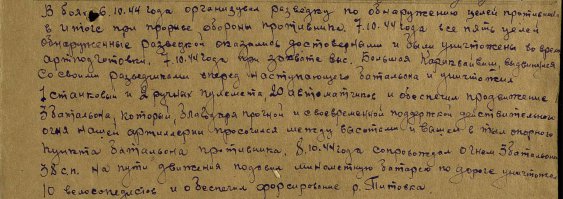 В боях 6.10.44 года организовал разведку по обнаружению целей противника
в итоге при прорыве обороны противника 7.10.44 года все пять целей
обнаруженные разведкой оказались достоверными и были уничтожены во время
артподготовки. 7.10.44 года при захвате выс. Большая Кариквайвиш, выдвинулся
со своими разведчиками вперед наступающего батальона и уничтожил
1 станковый и 2 ручных пулемета 20 автоматчиков и обеспечил продвижение
3 батальона, который благодаря прочной и своевременной поддержки действительным
огня нашей артиллерии просочился между высотами и вышел в тыл опорного
пункта батальона противника. 8.10.44 года сопровождал огнем 3 батальон
35 сп. на пути движения подавил минометную батарею по дороге уничтожил
10 велосипедистов и обеспечил форсирование р. Титовка.